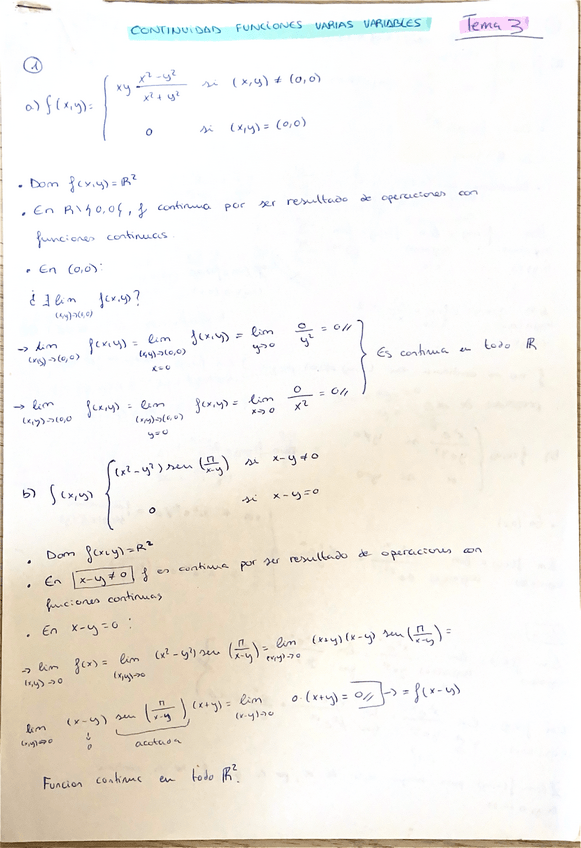 CONTINUIDAD FUNCIONES VARIAS VARIABLES Tema 3
①
a) f(x,y) = { xy (x²-y²)/(x²+y²) si (x,y) ≠ (0,0)
0 si (x,y) = (0,0)
• Dom f(x,y) = R²
• En R\{0,0{, f continua por ser resultado de operaciones con
funciones continuas.
• En (0,0):
¿∃ lim (x,y)→(0,0) f(x,y)?
→ lim (x,y)→(0,0) f(x,y) = lim (x,y)→(0,0) x=0 f(x,y) = lim y→0 0/y² = 0//
Es continua en todo R
→ lim (x,y)→(0,0 f(x,y) = lim (x,y)→(0,0) y=0 f(x,y) = lim x→0 0/x² = 0//
b) f(x,y) { (x²-y²) sen (π/(x-y)) si x-y≠0
0 si x-y=0
• Dom f(x,y) = R²
• En x-y≠0 f es continua por ser resultado de operaciones con
funciones continuas
• En x-y=0:
→ lim (x,y)→0 f(x) = lim (x,y)→0 (x²-y²) sen (π/(x-y)) = lim (x,y)→0 (x+y)(x-y) sen (π/(x-y)) =
lim (x,y)→0 (x-y) sen (π/(x-y)) (x+y) = lim (x-y)→0 0·(x+y) = 0// → = f(x-y)
↓ 0 acotada
Función continua en todo R².